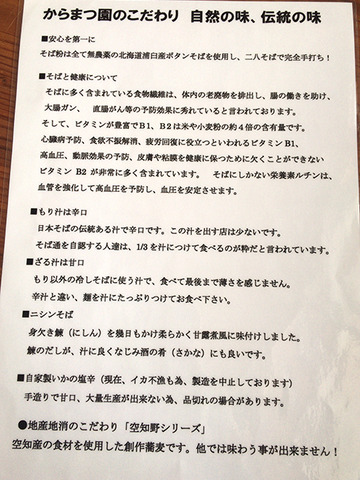 からまつ園のこだわり 自然の味、伝統の味
■安心を第一に
そば粉は全て無農薬の北海道浦臼産ボタンそばを使用し、二八そばで完全手打ち！
■そばと健康について
そばに多く含まれている食物繊維は、体内の老廃物を排出し、腸の働きを助け、
大腸ガン、 直腸がん等の予防効果に秀れていると言われております。
そして、ビタミンが豊富でB1、B2は米や小麦粉の約4倍の含有量です。
心臓病予防、食欲不振解消、疲労回復に役立つといわれるビタミン B1、
高血圧、動脈効果の予防、皮膚や粘膜を健康に保つために欠くことができない
ビタミン B2 が非常に多く含まれています。 そばにしかない栄養素ルチンは、
血管を強化して高血圧を予防し、血圧を安定させます。
■もり汁は辛口
日本そばの伝統ある汁で辛口です。この汁を出す店は少ないです。
そば通を自認する人達は、1/3 を汁につけて食べるのが粋だと言われています。
■ざる汁は甘口
もり以外の冷しそばに使う汁で、食べて最後まで薄さを感じません。
辛汁と違い、麺を汁にたっぷりつけてお食べ下さい。
■ニシンそば
身欠き鰊（にしん）を幾日もかけ柔らかく甘露煮風に味付けしました。
鰊のだしが、汁に良くなじみ酒の肴（さかな）にも良いです。
■自家製いかの塩辛（現在、イカ不漁も為、製造を中止しております）
手造りで甘口、大量生産が出来ない為、品切れの場合があります。
●地産地消のこだわり「空知野シリーズ」
空知産の食材を使用した創作蕎麦です。他では味わう事が出来ません！